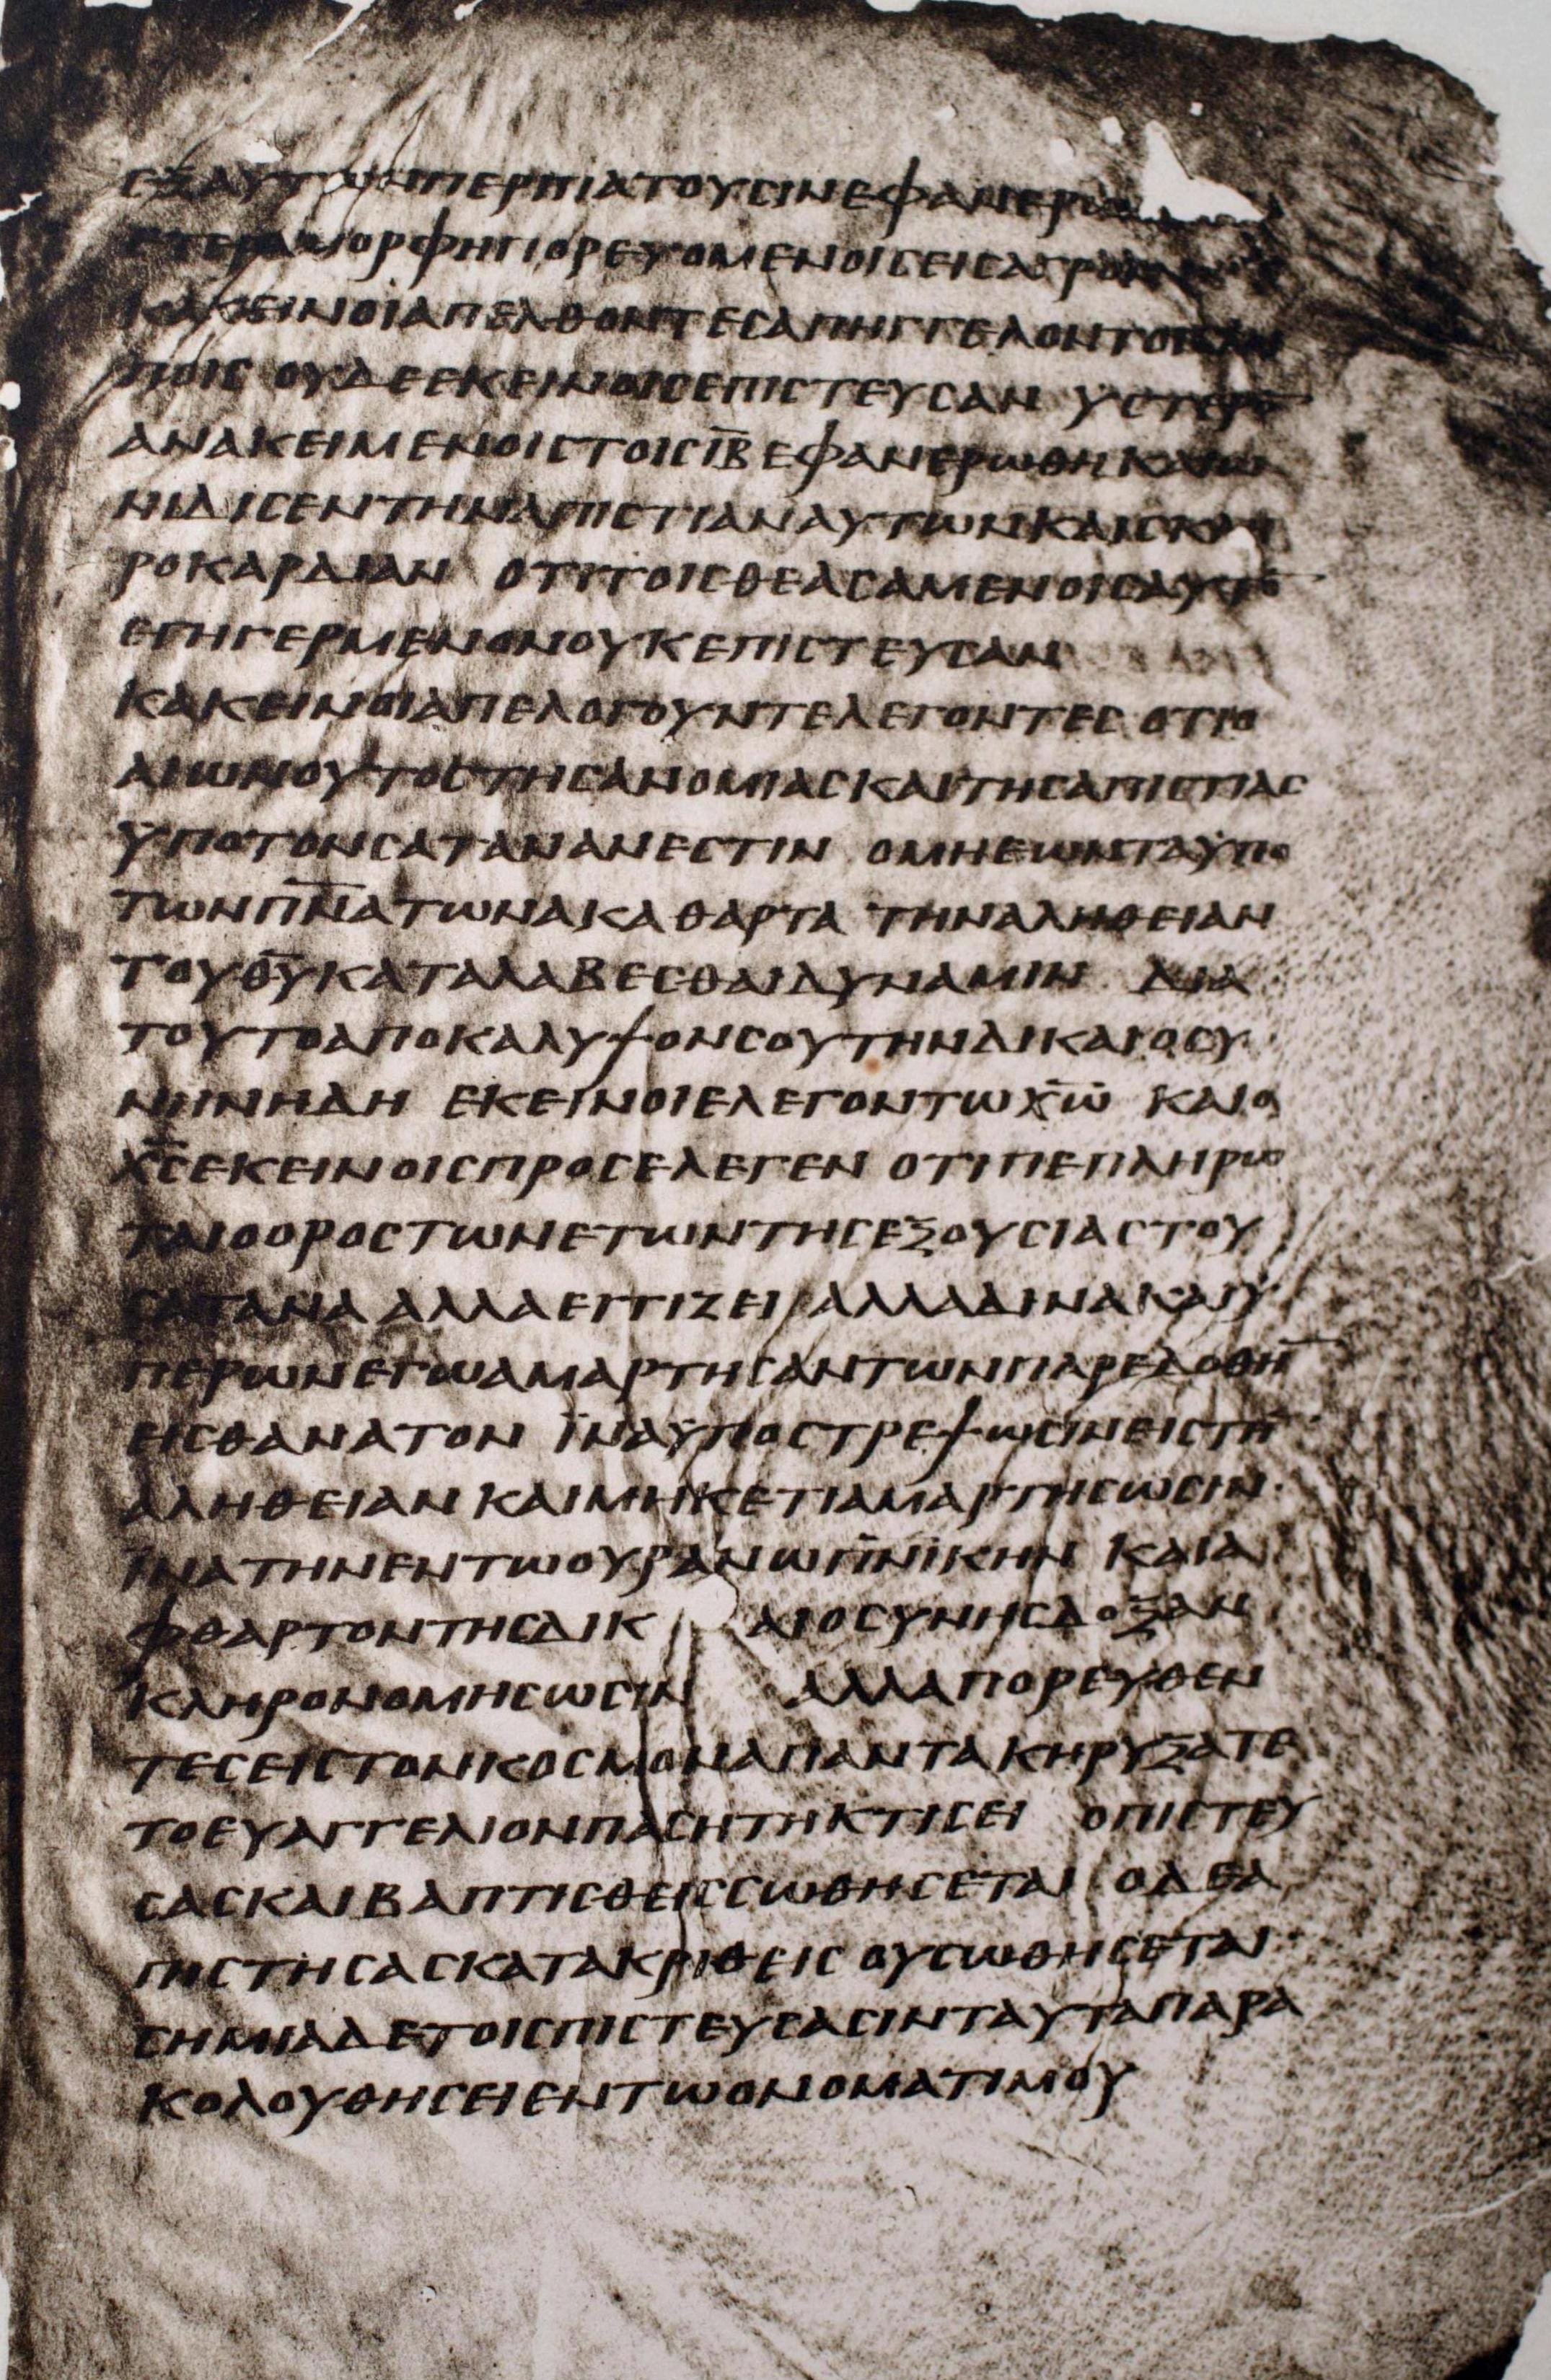 ΕΞΑΥΤΩΝΠΕΡΙΠΑΤΟΥCΙΝΕΦΑΝΕΡΩ
ΕΤΕΡΑΜΟΡΦΗΠΟΡΕΥΟΜΕΝΟΙCΕΙCΑΓΡΟΝ
ΚΑΚΕΙΝΟΙΑΠΕΛΘΟΝΤΕCΑΠΗΓΓΕΛΟΝΤΟΙCΛΟΙ
ΠΟΙC ΟΥΔΕΕΚΕΙΝΟΙCΕΠΙCΤΕΥCΑΝ ΥCΤΕΡΟ̅
ΑΝΑΚΕΙΜΕΝΟΙCΤΟΙCΙ̅Β̅ΕΦΑΝΕΡΩΘΗΚΑΙΩ
ΝΙΔΙCΕΝΤΗΝΑΠΙCΤΙΑΝΑΥΤΩΝΚΑΙCΚΛΗ
ΡΟΚΑΡΔΙΑΝ ΟΤΙΤΟΙCΘΕΑCΑΜΕΝΟΙCΑΥΤΟ̅
ΕΓΗΓΕΡΜΕΝΟΝΟΥΚΕΠΙCΤΕΥCΑΝ
ΚΑΚΕΙΝΟΙΑΠΕΛΟΓΟΥΝΤΕΛΕΓΟΝΤΕC ΟΤΙΟ
ΑΙΩΝΟΥΤΟCΤΗCΑΝΟΜΙΑCΚΑΙΤΗCΑΠΙCΤΙΑC
ΥΠΟΤΟΝCΑΤΑΝΑΝΕCΤΙΝ ΟΜΗΕΩΝΤΑΫΠΟ
ΤΩΝΠ̅Ν̅Α̅ΤΩΝΑΚΑΘΑΡΤΑ ΤΗΝΑΛΗΘΕΙΑΝ
ΤΟΥΘ̅Υ̅ΚΑΤΑΛΑΒΕCΘΑΙΔΥΝΑΜΙΝ ΔΙΑ
ΤΟΥΤΟΑΠΟΚΑΛΥΨΟΝCΟΥΤΗΝΔΙΚΑΙΟCΥ
ΝΗΝΗΔΗ ΕΚΕΙΝΟΙΕΛΕΓΟΝΤΩΧ̅Ω̅ ΚΑΙΟ
Χ̅C̅ΕΚΕΙΝΟΙCΠΡΟCΕΛΕΓΕΝ ΟΤΙΠΕΠΛΗΡΩ
ΤΑΙΟΟΡΟCΤΩΝΕΤΩΝΤΗCΕΞΟΥCΙΑCΤΟΥ
CΑΤΑΝΑ ΑΛΛΑΕΓΓΙΖΕΙ ΑΛΛΑΔΙΝΑΚΑΙΫ
ΠΕΡΩΝΕΓΩΑΜΑΡΤΗCΑΝΤΩΝΠΑΡΕΔΟΘΗ̅
ΕΙCΘΑΝΑΤΟΝ ΪΝΑΫΠΟCΤΡΕΨΩCΙΝΕΙCΤΗ̅
ΑΛΗΘΕΙΑΝ ΚΑΙΜΗΚΕΤΙΑΜΑΡΤΗCΩCΙΝ·
ΪΝΑΤΗΝΕΝΤΩΟΥΡΑΝΩΠ̅Ν̅ΙΚΗΝ ΚΑΙΑ
ΦΘΑΡΤΟΝΤΗCΔΙΚ ΑΙΟCΥΝΗCΔΟΞΑΝ
ΚΛΗΡΟΝΟΜΗCΩCΙΝ ΑΛΛΑΠΟΡΕΥΘΕΝ
ΤΕCΕΙCΤΟΝΚΟCΜΟΝΑΠΑΝΤΑΚΗΡΥΞΑΤΕ
ΤΟΕΥΑΓΓΕΛΙΟΝΠΑCΗΤΗΚΤΙCΕΙ ΟΠΙCΤΕΥ
CΑCΚΑΙΒΑΠΤΙCΘΕΙCCΩΘΗCΕΤΑΙ ΟΔΕΑ
ΠΙCΤΗCΑCΚΑΤΑΚΡΙΘΕΙC ΟΥCΩΘΗCΕΤΑΙ·
CΗΜΙΑΔΕΤΟΙCΠΙCΤΕΥCΑCΙΝΤΑΥΤΑΠΑΡΑ
ΚΟΛΟΥΘΗCΕΙΕΝΤΩΟΝΟΜΑΤΙΜΟΥ